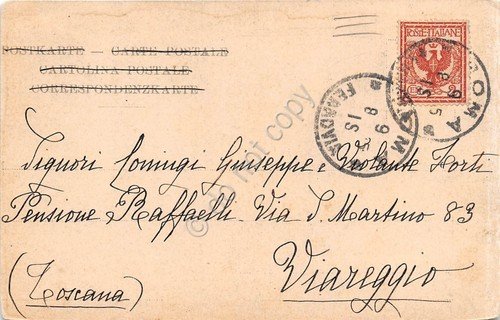 POSTKARTE — CARTE POSTALE
CARTOLINA POSTALE
CORRESPONDENZKARTE
POSTE ITALIANE
ROMA
FERROVIA
Signori Coniugi Giuseppe e Violante Forti
Pensione Raffaelli - Via S. Martino 83
Viareggio
(Toscana)
do not copy